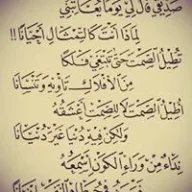 صديقي قال لي يوما يعاتبني
لماذا أنت كالتمثال أحيانا!!
تطيل الصمت حتى تبتغي فلكا
من الأفلاك تأويه وتنسانا
أطيل الصمت لا للصمت أعشقه
ولكن فيه دنيا غير دنيانا
نداء من وراء الكون أسمعه